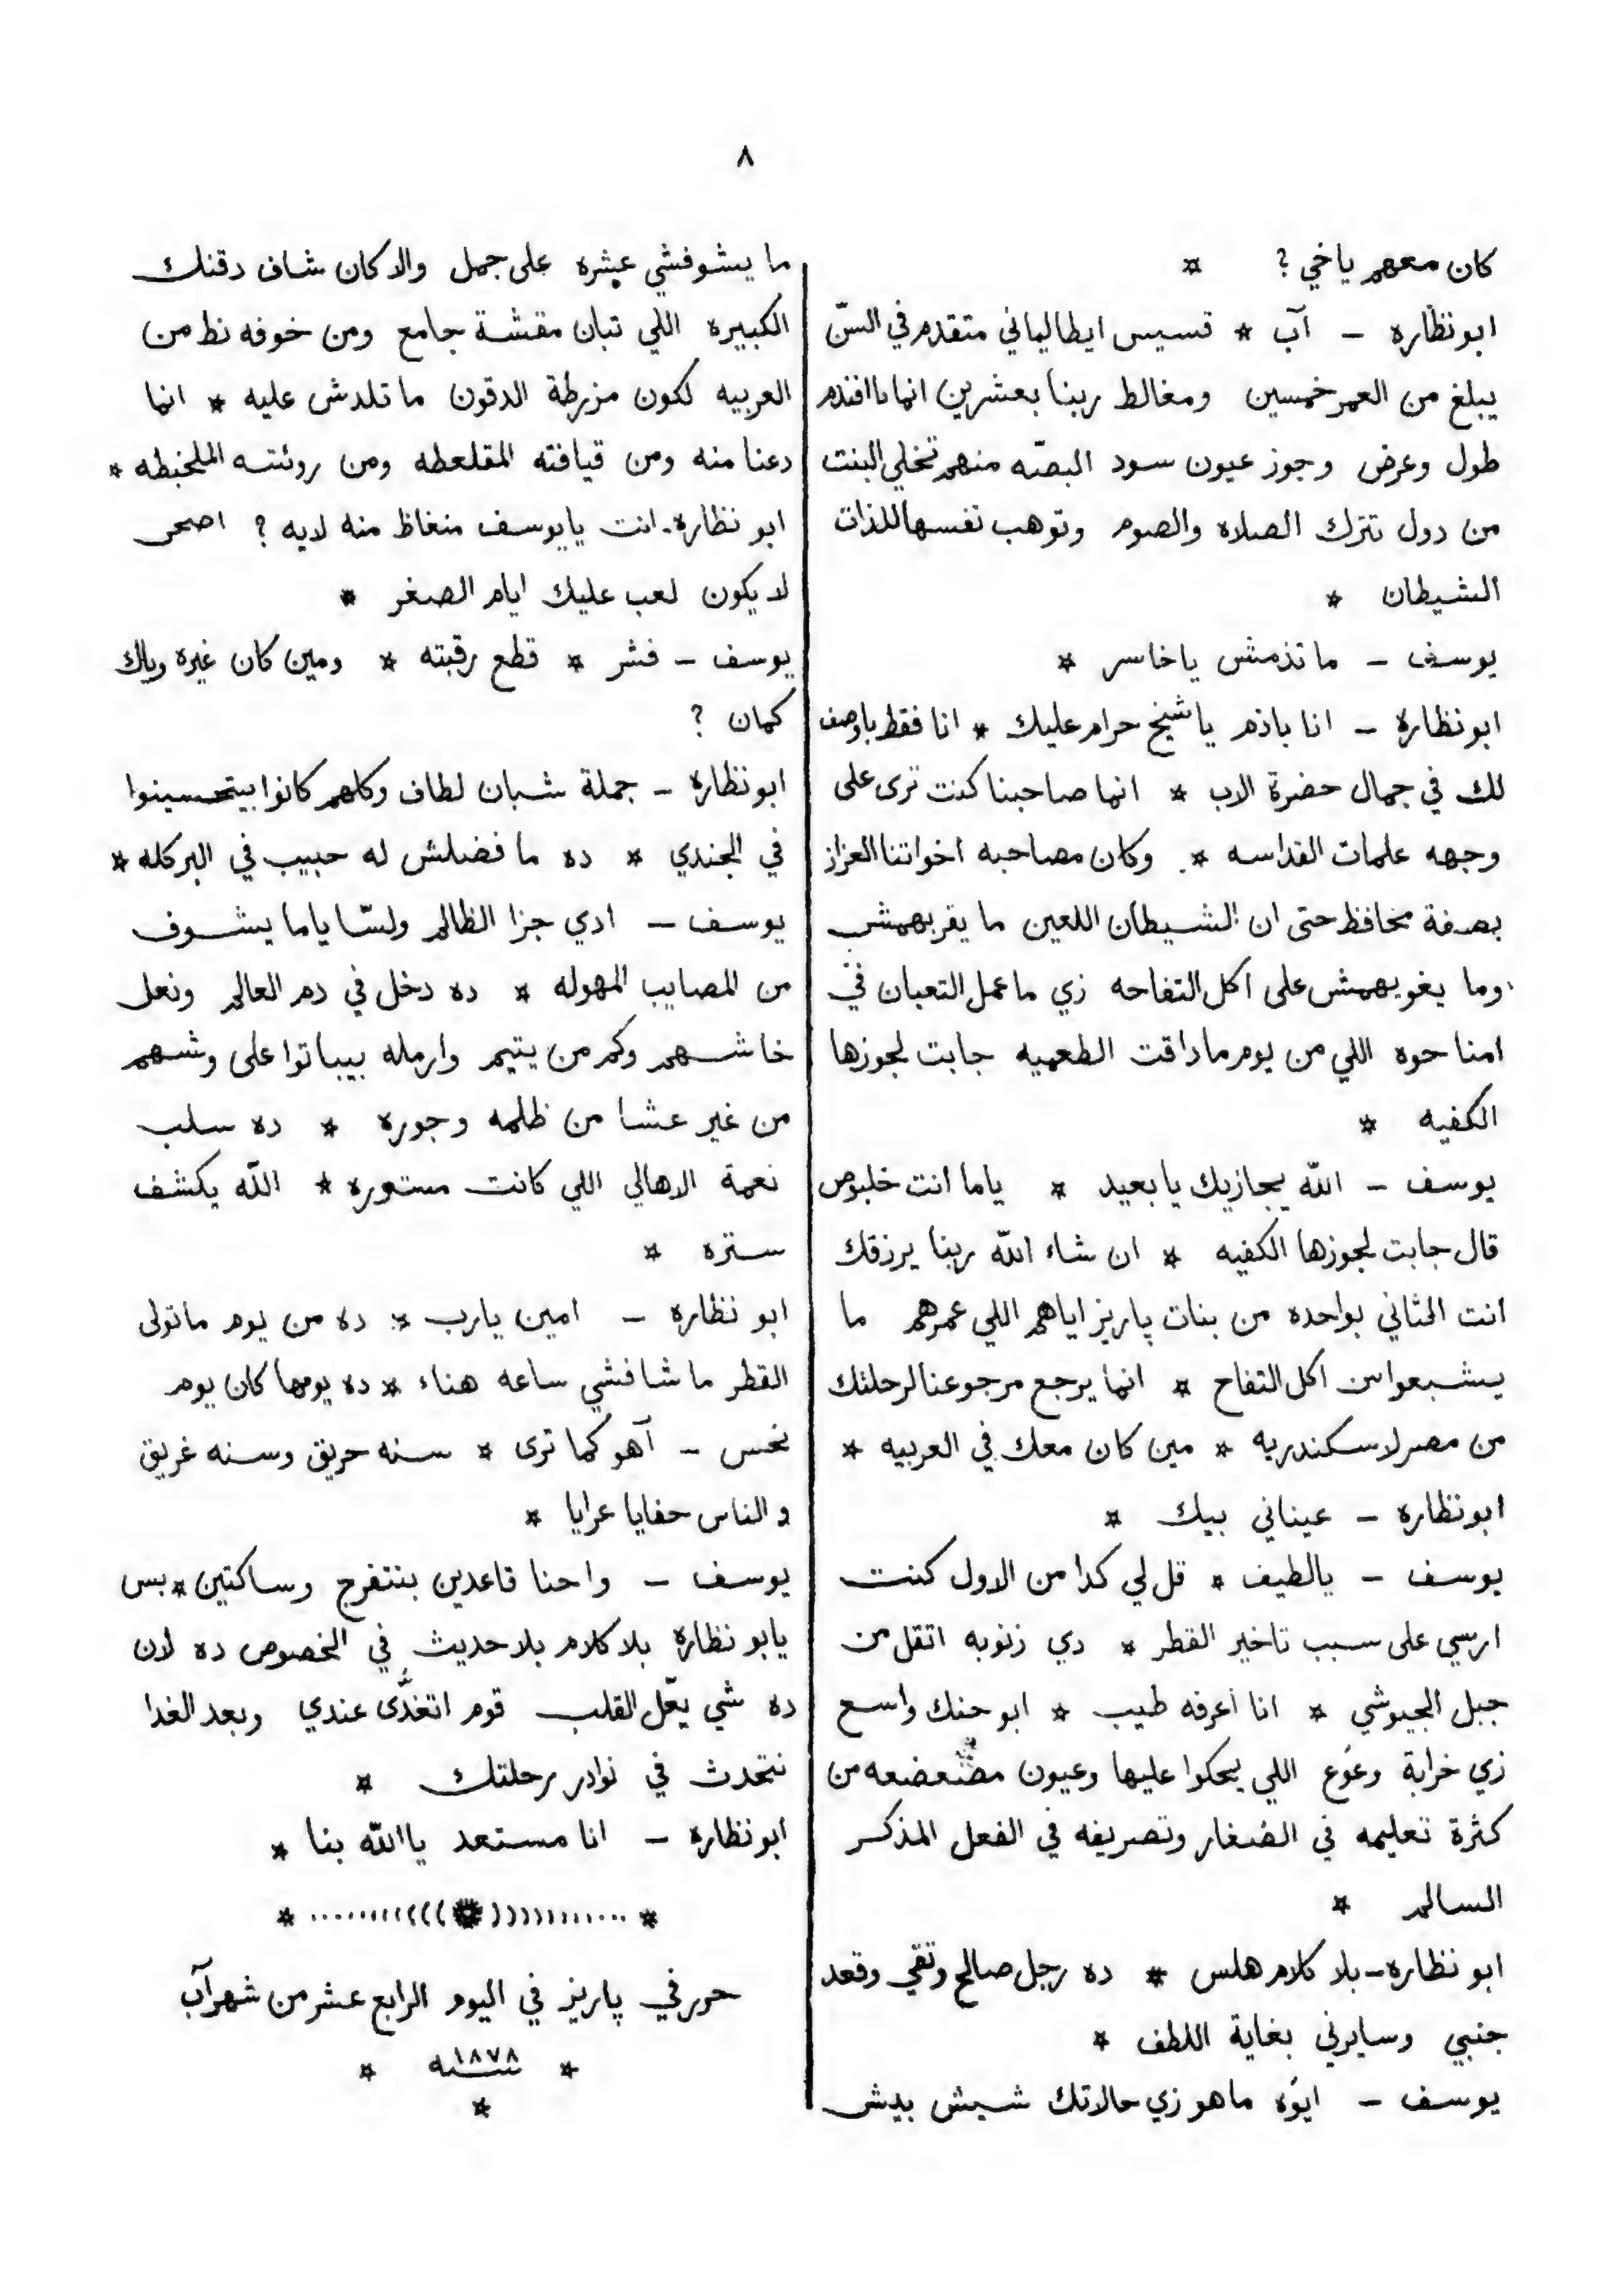 ٨
كان معهم ياخي ? *
ابو نظاره – آب * قسيس ايطالياني متقدم في السنّ
يبلغ من العمر خمسين ومغالط ربنا بعشرين انما ياافندم
طول وعرض وجوز عيون سود البصّه منهم تخلي البنت
من دول تترك الصلاه والصوم وتوهب نفسها للذات
الشيطان *
يوسف – ما تذمش ياخاسر *
ابو نظارة – انا باذم ياشيخ حرام عليك * انا فقط باوصف
لك في جمال حضرة الاب * انما صاحبنا كنت ترى على
وجهه علمات القداسه * وكان مصاحبه اخواتنا العزاز
بصفة محافظ حتى ان الشيطان اللعين ما يقربهمش
وما يغويهمش على اكل التفاحه زي ما عمل التعبان في
امنا حوه اللي من يوم ما داقت الطعميه جابت لجوزها
الكفيه *
يوسف – الله يجازيك يابعيد * ياما انت خلبوص
قال جابت لجوزها الكفيه * ان شاء الله ربنا يرزقك
انت الثاني بواحده من بنات پاريز اياهم اللي عمرهم ما
يشبعوا من اكل التفاح * انما يرجع مرجوعنا لرحلتك
من مصر لاسكندريه * مين كان معك في العربيه *
ابو نظاره – عيناني بيك *
يوسف – يالطيف * قل لي كدا من الاول كنت
ارسي على سبب تاخير القطر * دي زنوبه اتقل من
جبل الجيوشي * انا أعرفه طيب * ابو حنك واسع
زي خرابة وعوع اللي يحكوا عليها وعيون مضعضعه من
كثرة تعليمه في الصغار وتصريفه في الفعل المذكر
السالم *
ابو نظاره – بلا كلام هلس * ده رجل صالح وتقي وقعد
جنبي وسايرني بغاية اللطف *
يوسف – ايوه ماهو زي حالاتك شيش بيش
ما يشوفشي عشره على جمل والا كان شاف دقنك
الكبيره اللي تبان مقشة جامع ومن خوفه نط من
العربيه لكون مزرطة الدقون ما تلدش عليه * انما
دعنا منه ومن قيافته المقلعطه ومن روئته الملخبطه *
ابو نظاره – انت يايوسف منغاظ منه لايه ? اصحى
لا يكون لعب عليك ايام الصغر *
يوسف – فشر * قطع رقبته * ومين كان غيره وياك
كمان ?
ابو نظاره – جملة شبان لطاف وكلهم كانوا بيتحسينوا
في الجندي * ده ما فضلش له حبيب في البركله *
يوسف – ادي جزا الظالم ولسّا ياما يشوف
من المصايب المهوله * ده دخل في دم العالم ونعل
خاشهم وكم من يتيم وارمله بيباتوا على وشهم
من غير عشا من ظلمه وجوره * ده سلب
نعمة الاهالي اللي كانت مستوره * الله يكشف
ستره *
ابو نظاره – امين يارب * ده من يوم ماتولى
القطر ما شافشي ساعه هناء * ده يومها كان يوم
نحس – آهو كما ترى * سنه حريق وسنه غريق
والناس حفايا عرايا *
يوسف – واحنا قاعدين بنتفرج وساكتين * بس
يابو نظارة بلا كلام بلا حديث في الخصوص ده لان
ده شي يعّل القلب قوم اتغدَّى عندي وبعد الغدا
نتحدث في نوادر رحلتك *
ابو نظاره – انا مستعد ياالله بنا *
حرر في پاريز في اليوم الرابع عشر من شهر آب
* سنه ١٨٧٨ *
*